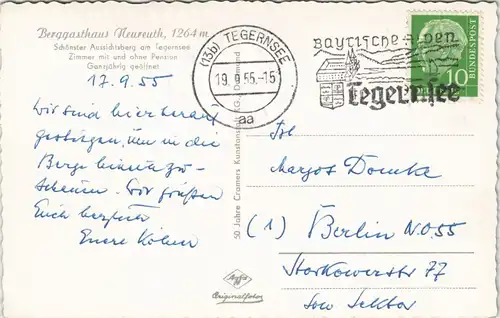 Berggasthaus Neureuth, 1264 m
Schönster Aussichtsberg am Tegernsee
Zimmer mit und ohne Pension
Ganzjährig geöffnet
17.9.55
Wir sind hier herauf
gestiegen, um in die
Berge hineinzu-
schauen. Wir grüßen
Euch herzlich
Eure
(13b) TEGERNSEE
19.9.55.-15
aa
Bayrische Alpen
Tegernsee
10
DEUTSCHE BUNDESPOST
50 Jahre Cramers Kunstanstalt KG., Dortmund
Agfa
Originalfoto
Margos Domke
(1) Berlin N.O.55
Storkowerstr 77
Sow Sektor